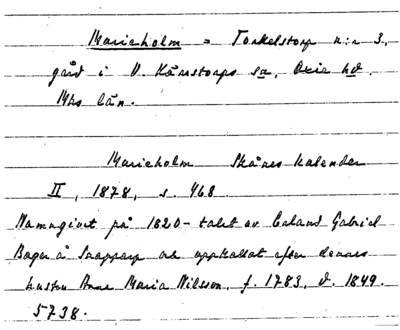 Marieholm = Torkelstorp n:r 3,
gård i V. Kärrstorps sn, Oxie hd.
Mhs län.
Marieholm Skånes kalender
II, 1878, s. 468
Namngivet på 1820-talet av Erland Gabriel
Bager å Snapparp och uppkallat efter dennes
hustru Anna Maria Nilsson, f. 1783, d. 1849.
5738.